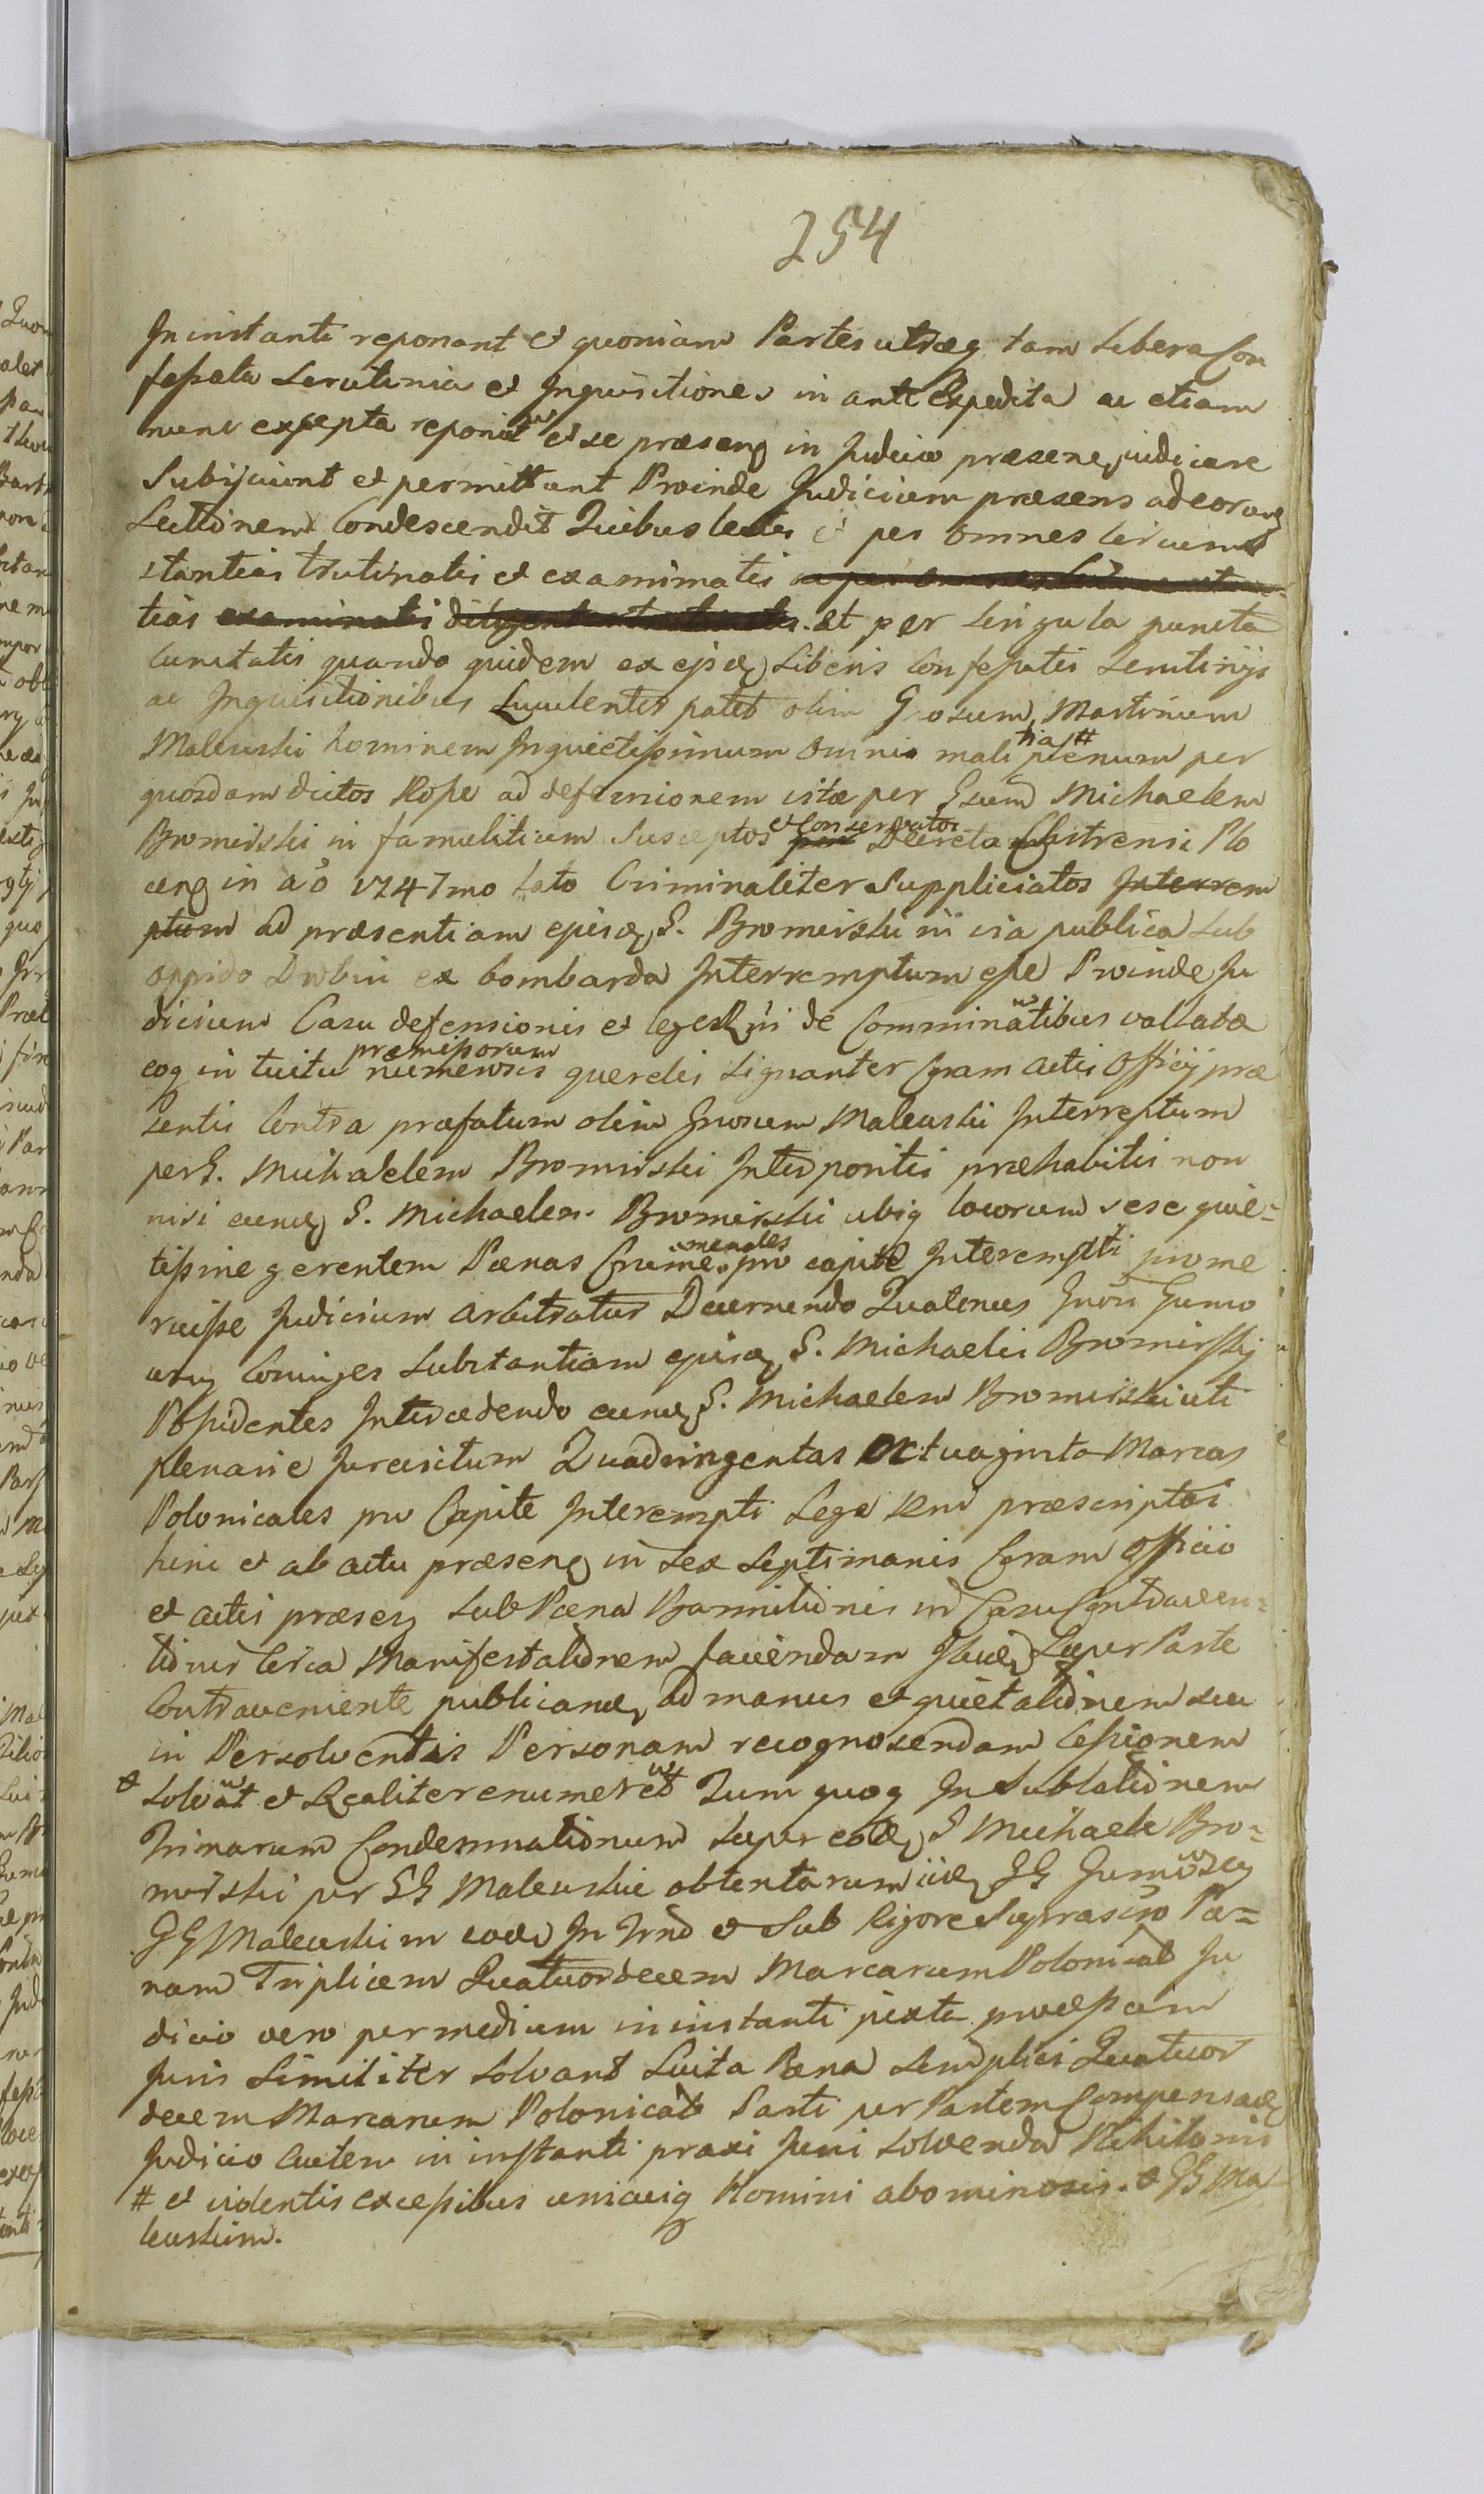 254
In instanti reponant et quoniam Partes utræq tam Libera Con
fessata Scrutinia et Inquisitiones in ante Expedita ac etiam
nunc excepta reponunt et se præsenq in Judicio præsenq judicare
Subijciunt et permittunt Proinde Judicium præsens ad eorunq
Lectionem Condescendit Quibus lectis et per omnes Circum
stantias trutinatis et examinatis
tias examinatis et per singula puncta
cunctatis quando quidem ex ejsdq Liberis Confessatis Scrutinijs
ac Inquisitionibus Luculenter patet olim Gnosum Martinum
Maleuski hominem Inquietissimum omnis malitia # plenum per
quosdam dictos Rope ad defensionem vitæ per Gsum Michaelem
Bromirski in famulitium Susceptos et Conservatos Decreto Castrensi Plo
cenq in a͠o 1747mo lato Criminaliter Suppliciatos Interrem
ptum ad præsentiam ejusdq G. Bromirski in via publica sub
oppido Drobin ex bombarda Interremptum esse Proinde Ju
dicium Casu defensionis et leges Rni de Comminatibus vallatæ
eoq intuitu præmissorum numerosis querelis signanter Coram Actis Officij præ
sentis Contra præfatum olim Gnosum Maleuski Interreptum
per G. Michaelem Bromirski Interpositis præhabitis non
nisi eundq G. Michaelem Bromirski ubiq locorum sese quie=
tissime gerentem Pænas Crimenales pro capite Interempti prome
ruisse Judicium arbitratur Decernendo Quatenus Gnosi Gumo
wscy Coniuges substantiam ejusdq G. Michaelis Bromirskij
Possidentes Intercedendo eundq G. Michaelem Bromirski uti
plenarie Jurevictum Quadringentas Octuaginta Marcas
Polonicales pro Capite Interempti Lege Rni præscriptas
hinc et ab actu præsenq in sex Septimanis Coram Officio
et actis præsenq sub Pæna Bannitionis in Casu Contraven=
tionis Circa Manifestationem faciendam Super Parte
Contraveniente publicandq ad manus et quietationem seu
in Persolventis Personam recognoscendam Cessionem
solvant et Realiter enumerent Tum quoq In Sublationem
Trinarum Condemnationum super eodq G Michaele Bro=
mirski per GG Maleuskie obtentarum iidq GG Gumowscy
GG Maleuskim eodq In Trno et sub Rigore Suprascro Pæ=
nam Triplicem Quatuordecem Marcarum Polonical Ju
dicio vero per medium in instanti juxta processum
Juris Similiter solvant Luita Pæna simplici Quatuor
decem Marcarum Polonical Parti per Partem Compensandq
Judicio autem in instanti praxi Juri solvenda Nihilominus
# et videntis excessibus unicuiq Homini abominosis. GG Ma
leuskim.